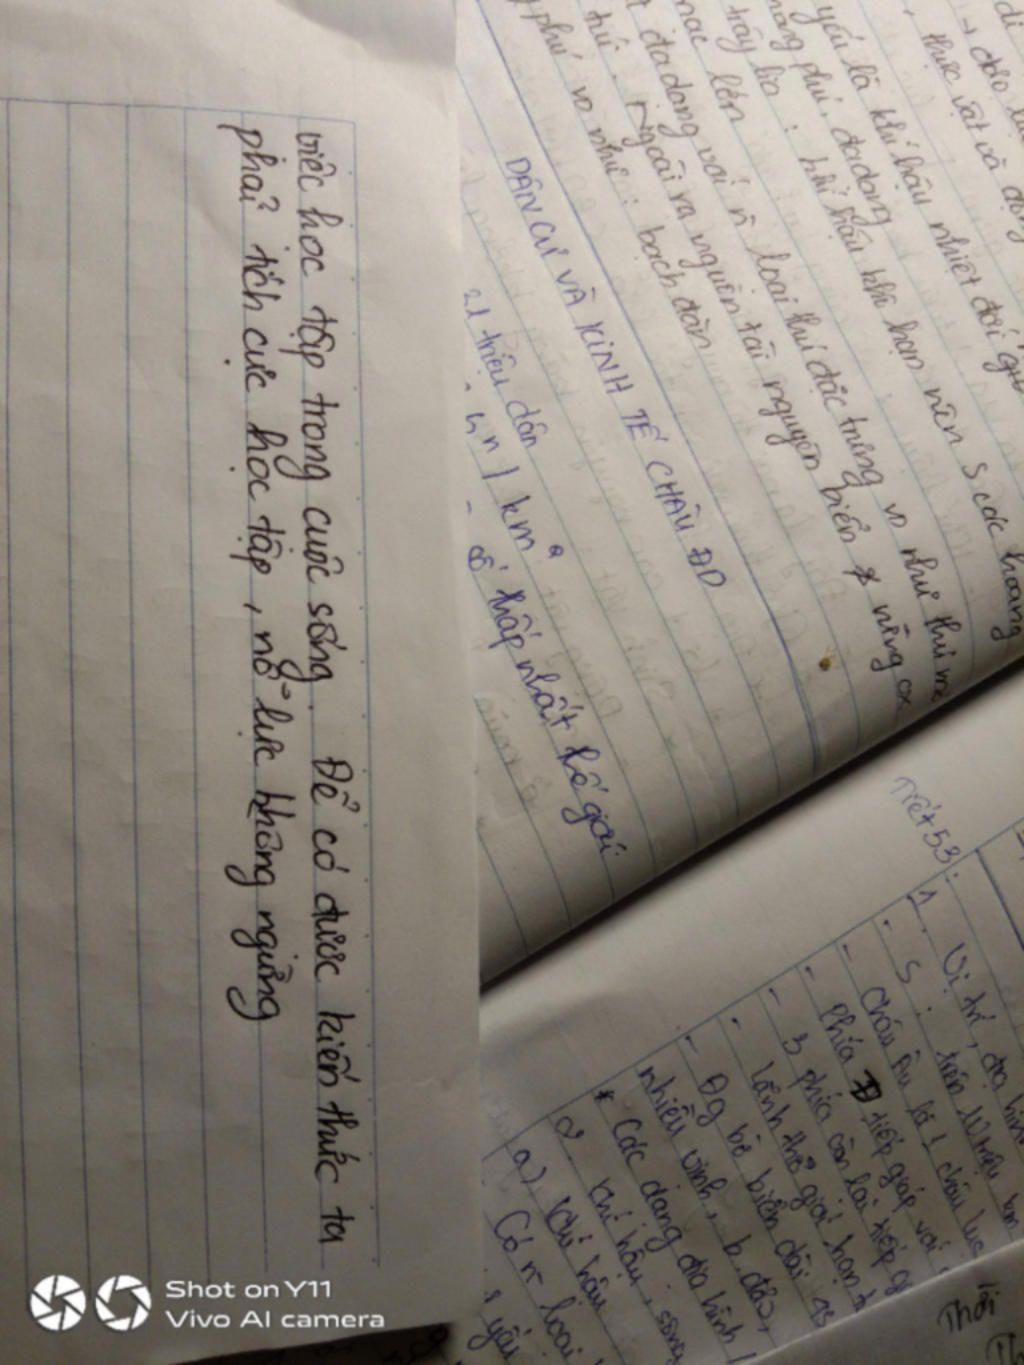 việc học tập trong cuộc sống. Để có được kiến thức ta
phải tích cực học tập, nỗ lực không ngừng
di
→ đảo
, thực vật và động
yếu là khí hậu nhiệt đới gió
phú, đa dạng
tây lio : khí hậu khô hạn nên S các hoang
mạc lớn
đa dạng với n loài thú đặc trưng vd như thú mỏ
thú. Ngoài ra nguồn tài nguyên biển * nóng ox
phú vd như : bạch đàn,
DÂN CƯ VÀ KINH TẾ CHÂU ĐD
21 triệu dân
n / km²
độ thấp nhất thế giới
Tiết 53:
1. Vị trí, địa hình
- S : trên 10 triệu km
- châu Âu là 1 châu lục
- phía Đ tiếp giáp với
- 3 phía còn lại tiếp g
- lãnh thổ giới hạn t
- Đg bờ biển dài, gs
nhiều vịnh, b đảo,
* Các dạng địa hình
2. khí hậu, sông
a) khí hậu
Có n loại
yếu
Thời
Shot on Y11
Vivo AI camera